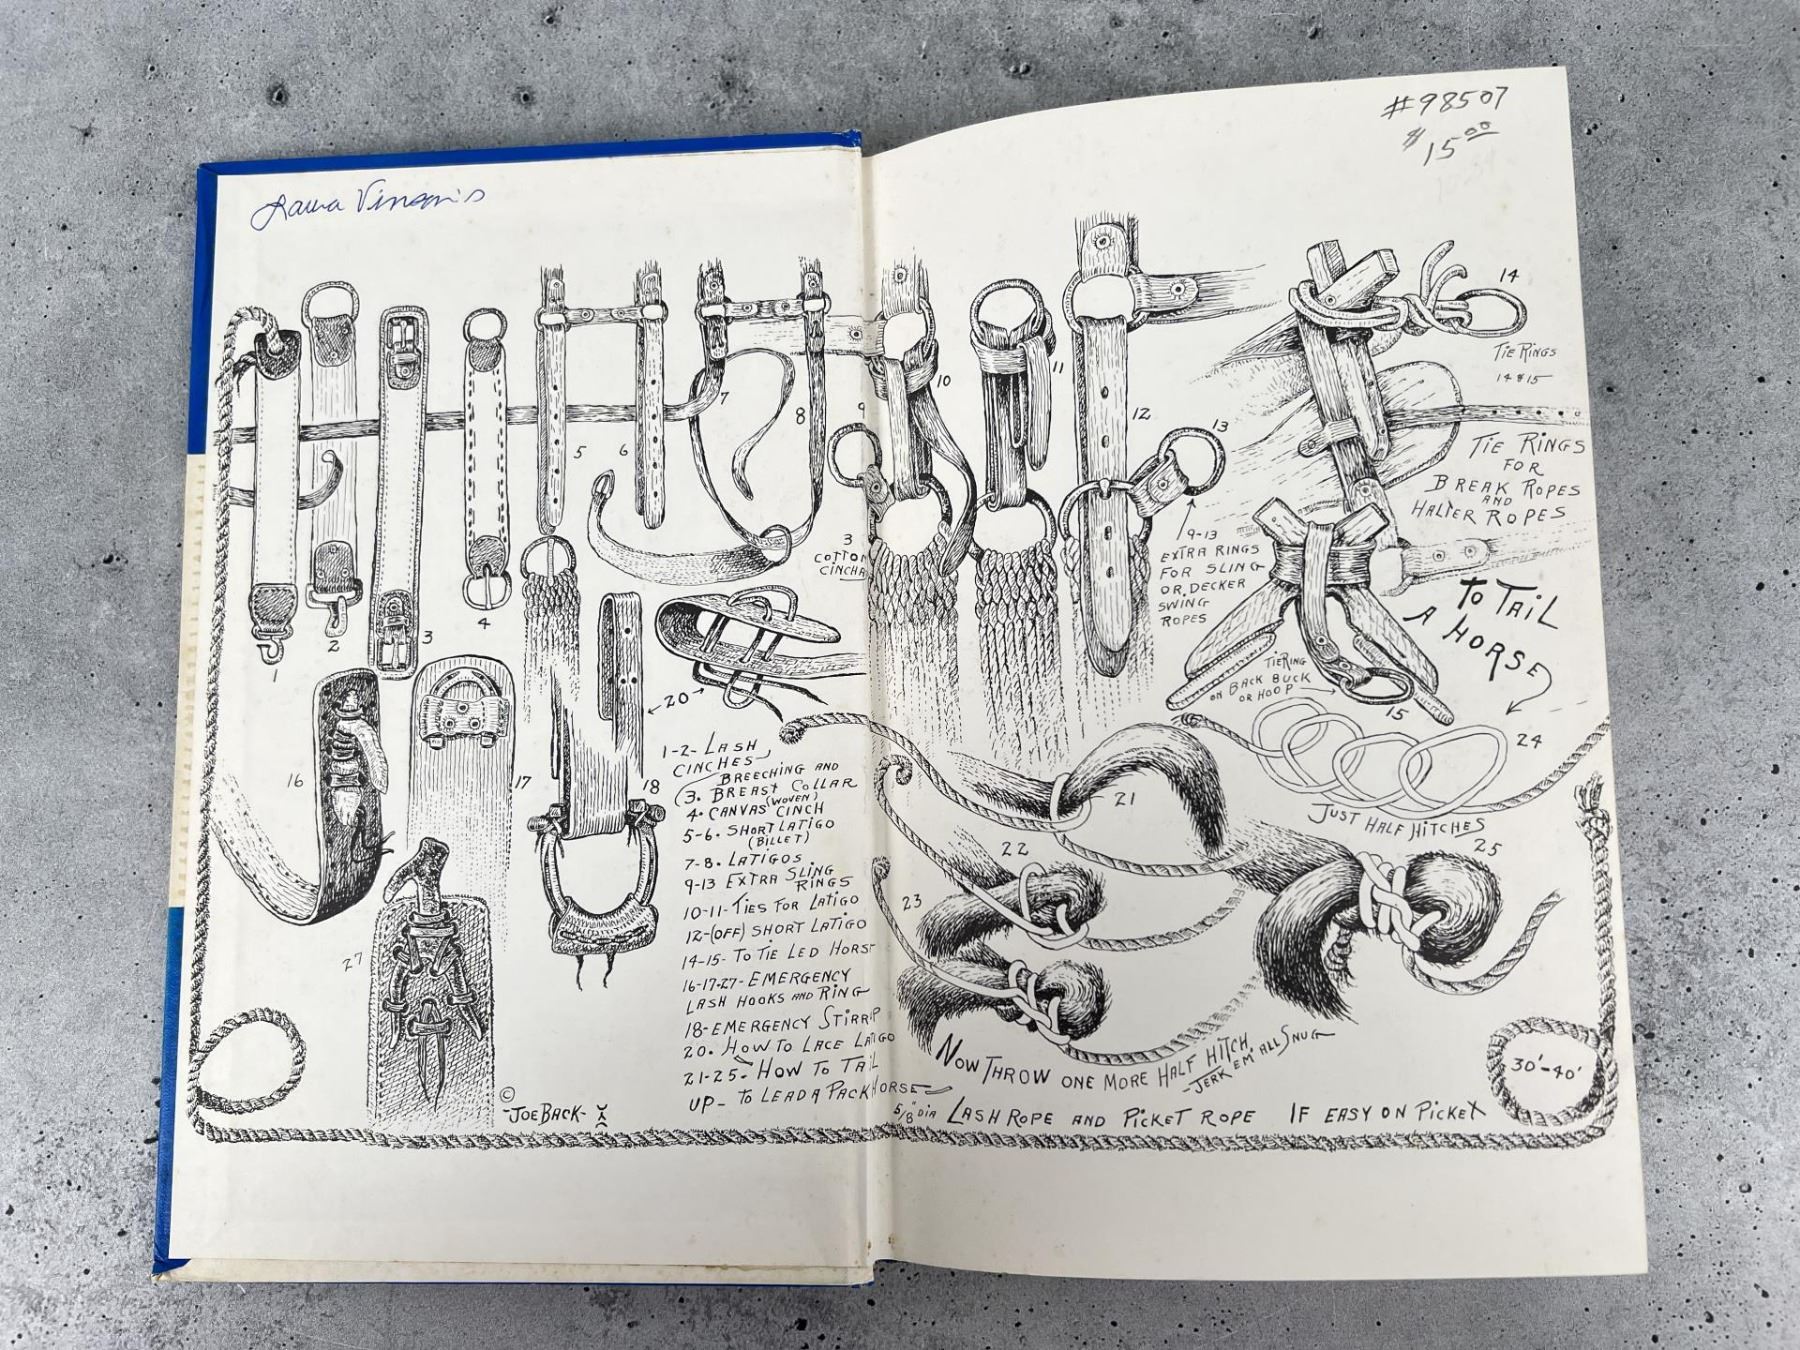 Laura Vinson's
#98507
$15.00
1
2
3
4
5
6
7
8
9
3
COTTON
CINCHA
10
11
12
13
14
TIE RINGS
14 & 15
TIE RINGS
FOR
BREAK ROPES
AND
HALTER ROPES
9-13
EXTRA RINGS
FOR SLING
OR DECKER
SWING
ROPES
TO TAIL
A HORSE
TIE RING
ON BACK BUCK
OR HOOP
15
16
17
18
20
27
1-2-LASH
CINCHES
BREECHING AND
(3. BREAST COLLAR
(WOVEN)
4. CANVAS CINCH
5-6. SHORT LATIGO
(BILLET)
7-8. LATIGOS
9-13 EXTRA SLING
RINGS
10-11-TIES FOR LATIGO
12-(OFF) SHORT LATIGO
14-15-TO TIE LED HORSE
16-17-27-EMERGENCY
LASH HOOKS AND RING
18-EMERGENCY STIRRIP
20. HOW TO LACE LATIGO
21-25-HOW TO TAIL
UP-TO LEAD A PACKHORSE
©
-JOE BACK-
21
22
23
24
JUST HALF HITCHES
25
NOW THROW ONE MORE HALF HITCH
-JERK EM' ALL SNUG
30'-40'
5/8" DIA LASH ROPE AND PICKET ROPE IF EASY ON PICKET